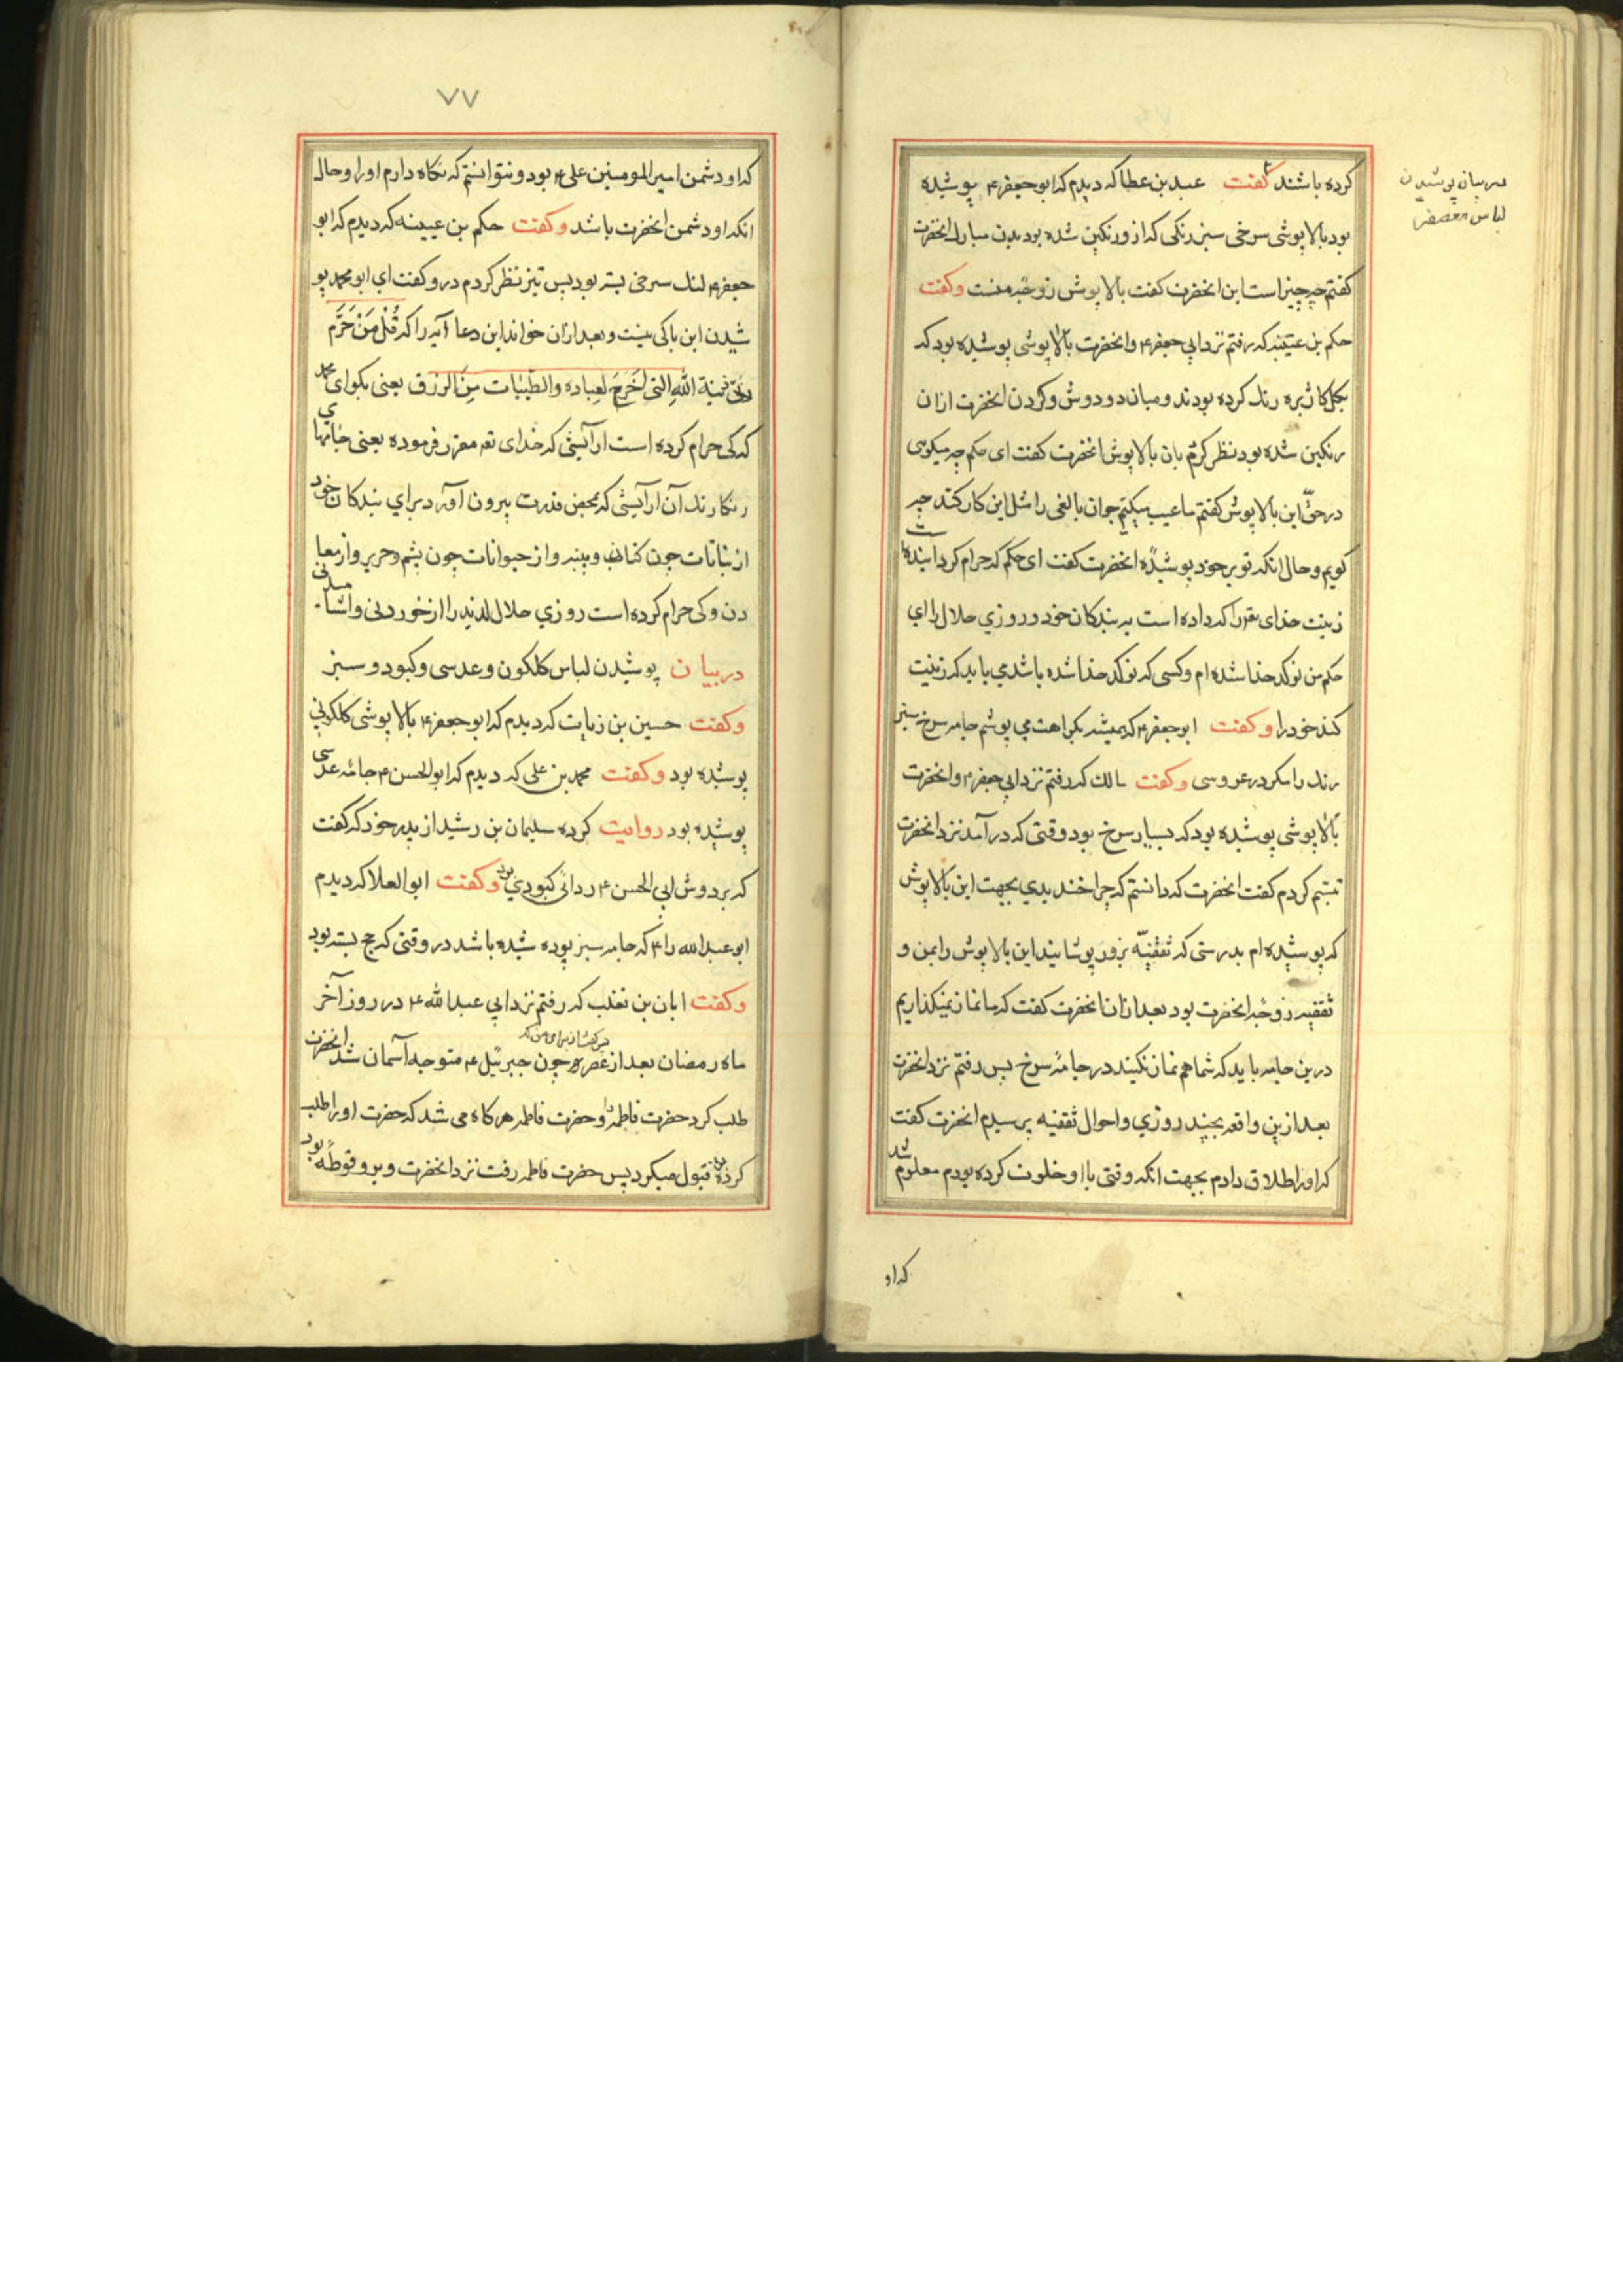 در بیان پوشیدن
لباس معصفر
کرده باشند کفت عبد بن عطا که دیدم که ابو جعفر ۴ پوشیده
بود بالاپوشی سرخی سیز رنکی که از و رنکین شده بود بدن مبارک انحضرت
کفتم چه چیز است این انحضرت کفت بالاپوش زوجۀ منست وکفت
حکم بن عتیبه که رفتم نزد ابی جعفر ۴ وانحضرت بالاپوشی پوشیده بود که
بکل کاژیره رنک کرده بودند ومیان دو دوش وکردن انحضرت ازان
رنکین شده بود نظر کردم بان بالاپوش انحضرت کفت ای حکم چه میکوی
در حق این بالاپوش کفتم ما عیب میکنیم جوان بالغی را مثل این کار کند چه
کویم وحال انکه تو بر خود پوشیدۀ انحضرت کفت ای حکم که حرام کردانیده است
زینت خدای تعم را که داده است به بندکان خود و روزی حلال را ای
حکم من نوکدخدا شده ام وکسی که نوکدخدا شده باشد می باید که زینت
کند خود را وکفت ابو جعفر ۴ که همیشه بکراهت می پوشم جامه سرخ سیر
رنک را مکر در عروسی وکفت مالک که رفتم نزد ابی جعفر ۴ وانحضرت
بالاپوشی پوشیده بود که بسیار سرخ بود وقتی که در آمد نزد انحضرت
تبسم کردم کفت انحضرت که دانستم که چرا خندیدی بجهت این بالاپوش
که پوشیده ام بدرستی که ثقفیّه بزور پوشانید این بالاپوش را بمن و
ثقفیه زوجۀ انحضرت بود بعد ازان انحضرت کفت که ما نماز نمیکذاریم
درین جامه باید که شما هم نماز نکنید در جامۀ سرخ پس رفتم نزد انحضرت
بعد ازین واقعه بچند روزی واحوال ثقفیه پرسیدم انحضرت کفت
که او را طلاق دادم بجهت انکه وقتی با او خلوت کرده بودم معلوم شد
که او
۷۷
که او دشمن امیر المومنین علی ۴ بود و نتوانستم که نکاه دارم او را وحال
انکه او دشمن انحضرت باشد وکفت حکم بن عیینه که دیدم که ابو
جعفر ۴ لنک سرخی بسته بود پس تیز نظر کردم در و کفت ای ابو محمد پو
شیدن این باکی نیست وبعد ازان خواند این دعا آیه را که قُلْ مَنْ حَرَّم
زینة اللهِ التی اَخرَجَ لِعِباده والطّیبات مِنَ الرزق یعنی بکو ای محمد
که کی حرام کرده است ارآیشی که خدای تعم مقرر فرموده یعنی جامهای
رنکا رنک آن ارآیشی که بمحض قدرت بیرون آورد برای بندکان خود
از نباتات چون کتان وپنبه واز حیوانات چون پشم وحریر واز معا
دن وکی حرام کرده است روزی حلال لذیذ را از خوردنی واشامیدنی
در بیان پوشیدن لباس کلکون وعدسی وکبود و سبز
وکفت حسین بن زیات که دیدم که ابو جعفر ۴ بالاپوشی کلکونی
پوشیده بود وکفت محمد بن علی که دیدم که ابو الحسن ۴ جامۀ عدسی
پوشیده بود روایت کرده سلیمان بن رشید از پدر خود که کفت
که بر دوش ابی الحسن ۴ ردائی کبودی بود وکفت ابو العلا که دیدم
ابو عبد الله را ۴ که جامه سبز پوده شیده باشد در وقتی که حج بسته بود
وکفت ابان بن تغلب که رفتم نزد ابی عبد الله ۴ در روز آخر
ماه رمضان بعد از عصر پس کفت از برای من که چون جبرئیل ۴ متوجه آسمان شد انحضرت
طلب کرد حضرت فاطمه را وحضرت فاطمه هرکاه می شد که حضرت او را طلب
کردی قبول میکرد پس حضرت فاطمه رفت نزد انحضرت وبرو قوطۀ بود